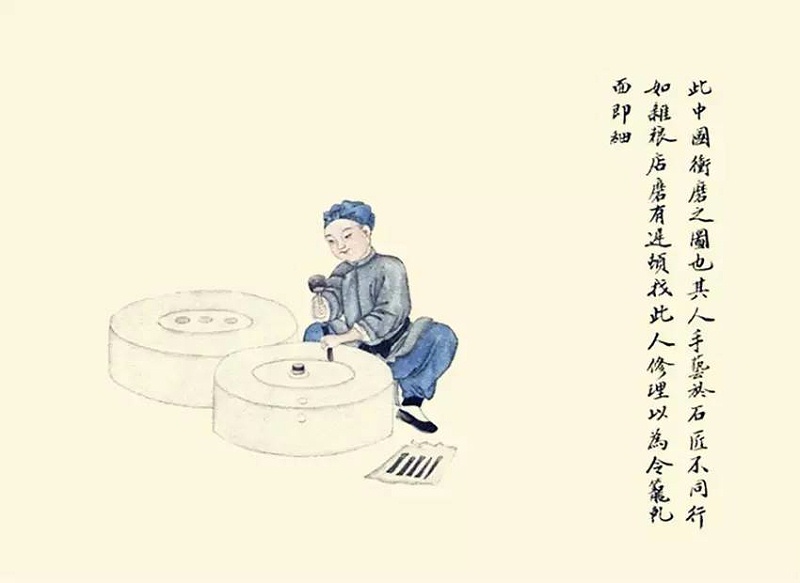 此中國衝磨之圖也其人手藝於石匠不同行
如雜粮店磨有遲頓找此人修理以為令軋
面即細